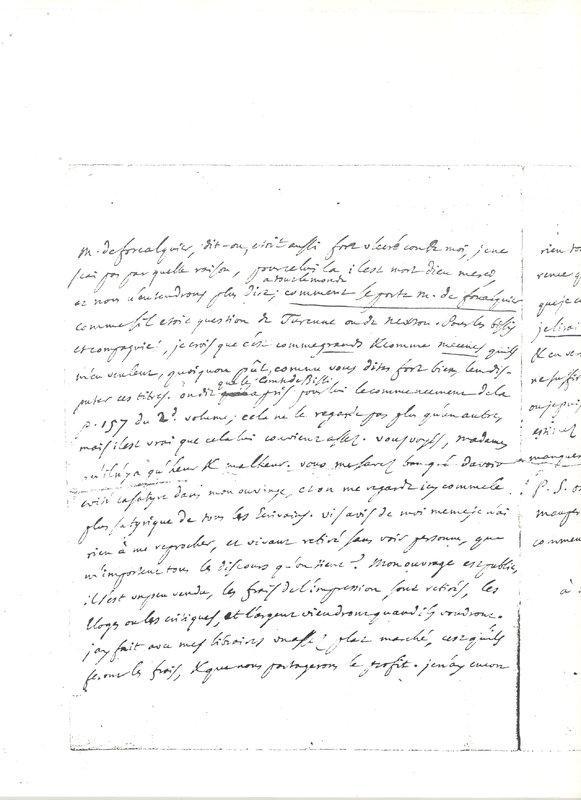 M. de forcalquier, dit-on, etoit aussi fort ulceré contre moi, je ne
sçai pas par quelle raison, pour celui la il est mort dieu merci,
a tout le monde
et nous n'entendrons plus dire, comment se porte M. de forcalquier
comme s'il etoit question de Turenne ou de newton. Pour les
et compagnie, je crois que c'est comme grands & comme mecenes qu'ils
m'en veulent, quoiqu'on pût, comme vous dites fort bien, leur dis-
puter ces titres. on dit que le Comte de Bissi a pris pour lui le commencement de la
p. 157 du 2d. volume; cela ne le regarde pas plus qu'un autre,
mais il est vrai que cela lui convient assez. vous voyés, madame,
qu'il n'y a qu'heur & malheur. vous me savez bon gré d'avoir
evité la satyre dans mon ouvrage, et on me regarde icy comme le
plus satyrique de tous les Ecrivains. vis à vis de moi meme je n'ai
rien à me reprocher, et vivant retiré sans voir personne, que
m'importent tous les discours qu'on tient? Mon ouvrage est public,
il s'est un peu vendu, les frais de l'impression sont retirés, les
Eloges ou les critiques, et l'argent viendront quand ils voudront.
j'ay fait avec mes libraires un assés plat marché, c'est qu'ils
feront les frais, & que nous partagerons le profit. je n'ay encor
rien to
venue q
que je
je lirai
K en ve
ne suffir
ou je pui
manque
P. S. o
comme
à